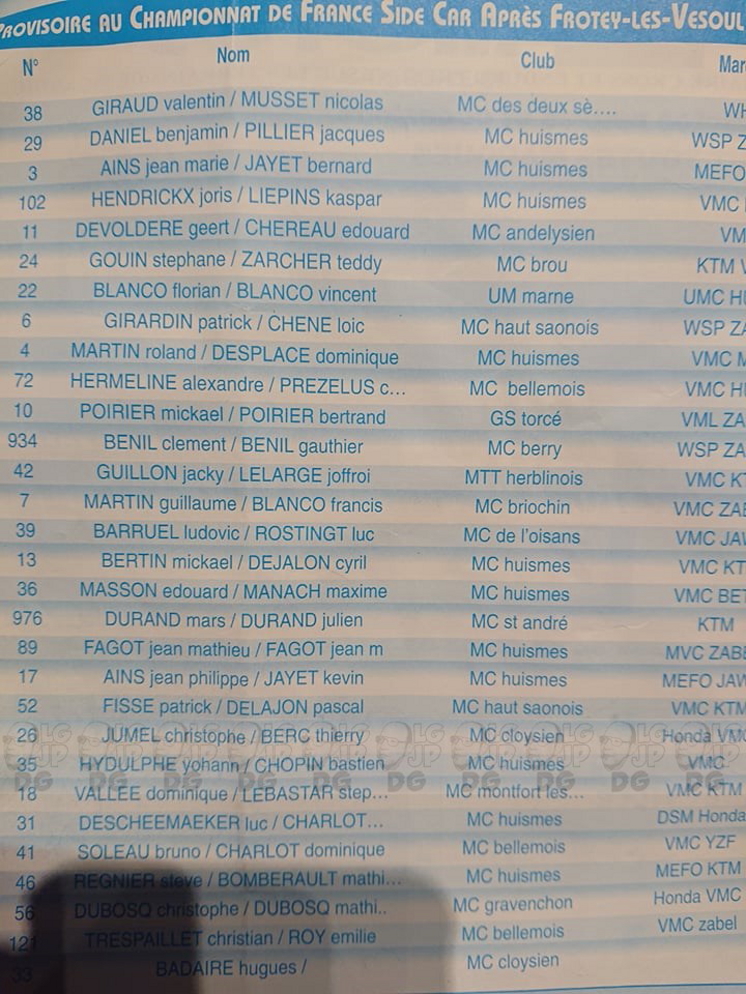 PROVISOIRE AU CHAMPIONNAT DE FRANCE SIDE CAR APRÈS FROTEY-LES-VESOUL
N° Nom Club Mar
38 GIRAUD valentin / MUSSET nicolas MC des deux sè.... WH
29 DANIEL benjamin / PILLIER jacques MC huismes WSP Z
3 AINS jean marie / JAYET bernard MC huismes MEFO
102 HENDRICKX joris / LIEPINS kaspar MC huismes VMC
11 DEVOLDERE geert / CHEREAU edouard MC andelysien VM
24 GOUIN stephane / ZARCHER teddy MC brou KTM V
22 BLANCO florian / BLANCO vincent UM marne UMC H
6 GIRARDIN patrick / CHENE loic MC haut saonois WSP ZA
4 MARTIN roland / DESPLACE dominique MC huismes VMC M
72 HERMELINE alexandre / PREZELUS c... MC bellemois VMC H
10 POIRIER mickael / POIRIER bertrand GS torcé VML ZA
934 BENIL clement / BENIL gauthier MC berry WSP ZA
42 GUILLON jacky / LELARGE joffroi MTT herblinois VMC KT
7 MARTIN guillaume / BLANCO francis MC briochin VMC ZAB
39 BARRUEL ludovic / ROSTINGT luc MC de l'oisans VMC JAW
13 BERTIN mickael / DEJALON cyril MC huismes VMC KT
36 MASSON edouard / MANACH maxime MC huismes VMC BET
976 DURAND mars / DURAND julien MC st andré KTM
89 FAGOT jean mathieu / FAGOT jean m MC huismes MVC ZABE
17 AINS jean philippe / JAYET kevin MC huismes MEFO JAW
52 FISSE patrick / DELAJON pascal MC haut saonois VMC KTM
26 JUMEL christophe / BERC thierry MC cloysien Honda VMC
35 HYDULPHE yohann / CHOPIN bastien MC huismes VMC
18 VALLÉE dominique / LEBASTAR step... MC montfort les... VMC KTM
31 DESCHEEMAEKER luc / CHARLOT... MC huismes DSM Honda
41 SOLEAU bruno / CHARLOT dominique MC bellemois VMC YZF
46 REGNIER steve / BOMBERAULT mathi... MC huismes MEFO KTM
56 DUBOSQ christophe / DUBOSQ mathi.. MC gravenchon Honda VMC
121 TRESPAILLET christian / ROY emilie MC bellemois VMC zabel
33 BADAIRE hugues / MC cloysien